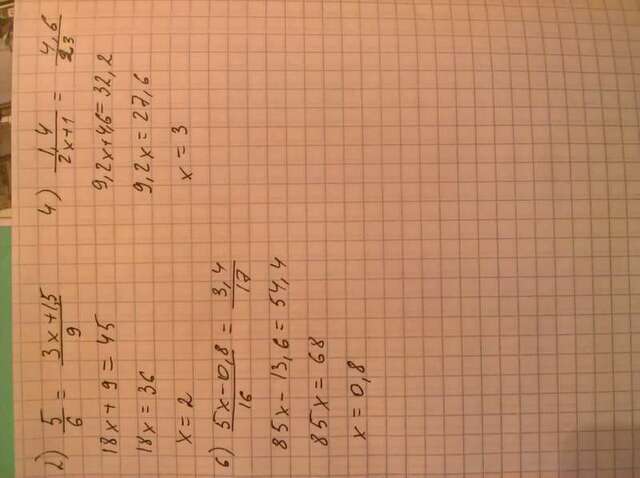 2) 5/6 = 3x+1,5/9
18x + 9 = 45
18x = 36
x = 2
4) 1,4/2x+1 = 4,6/23
9,2x+4,6=32,2
9,2x = 27,6
x = 3
6) 5x-0,8/16 = 3,4/17
85x - 13,6 = 54,4
85x = 68
x = 0,8